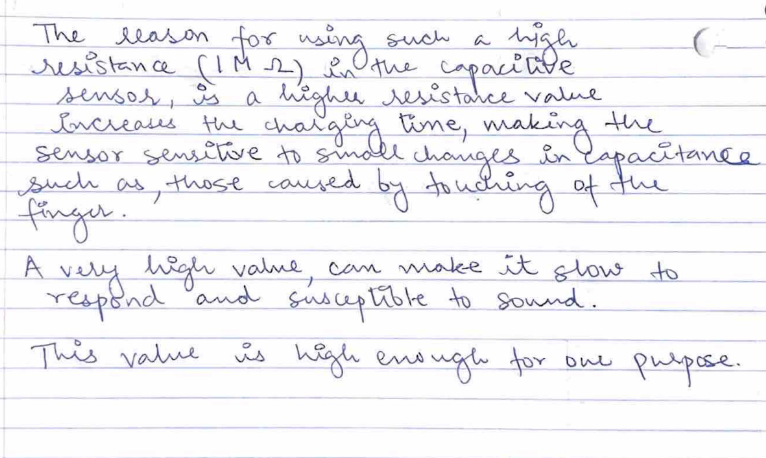 The reason for using such a high
resistance (1 M Ω) in the capacitive
sensor, is a higher resistance value
increases the charging time, making the
sensor sensitive to small changes in capacitance
such as, those caused by touching of the
finger.
A very high value, can make it slow to
respond and susceptible to sound.
This value is high enough for our purpose.